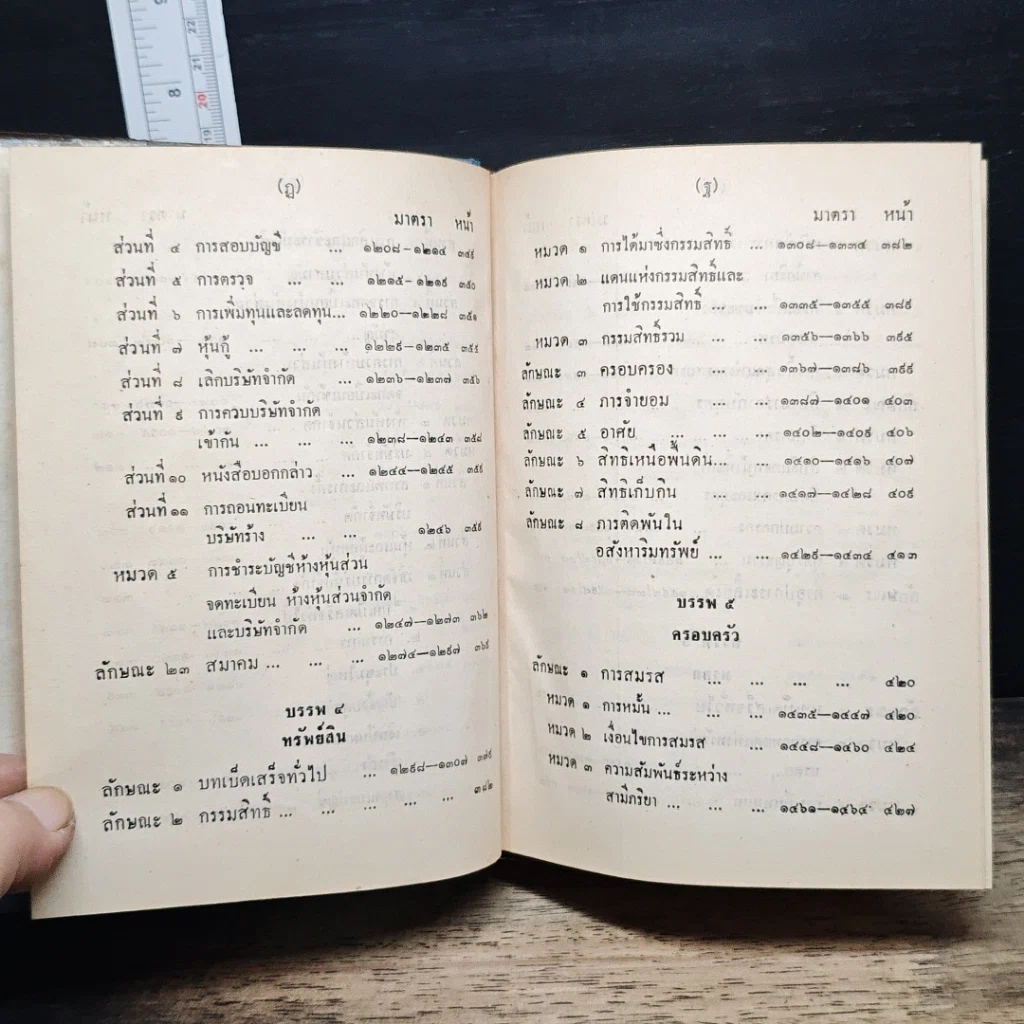 9
8
22
21
20
19
(ฏ)
มาตรา หน้า
ส่วนที่ ๔ การสอบบัญชี ... ๑๒๐๘-๑๒๑๔ ๓๔๙
ส่วนที่ ๕ การตรวจ ... ... ๑๒๑๕-๑๒๑๙ ๓๕๐
ส่วนที่ ๖ การเพิ่มทุนและลดทุน... ๑๒๒๐-๑๒๒๘ ๓๕๑
ส่วนที่ ๗ หุ้นกู้ ... ... ... ๑๒๒๙-๑๒๓๕
ส่วนที่ ๘ เลิกบริษัทจำกัด ... ๑๒๓๖-๑๒๓๗ ๓๕๖
ส่วนที่ ๙ การควบบริษัทจำกัด
เข้ากัน ... ... ... ๑๒๓๘-๑๒๔๓ ๓๕๘
ส่วนที่ ๑๐ หนังสือบอกกล่าว ... ๑๒๔๔-๑๒๔๕ ๓๕๙
ส่วนที่ ๑๑ การถอนทะเบียน
บริษัทร้าง ... ... ๑๒๔๖ ๓๕๙
หมวด ๕ การชำระบัญชีห้างหุ้นส่วน
จดทะเบียน ห้างหุ้นส่วนจำกัด
และบริษัทจำกัด ... ๑๒๔๗—๑๒๗๓ ๓๖๒
ลักษณะ ๒๓ สมาคม ... ... ... ๑๒๗๔—๑๒๙๗ ๓๖๙
บรรพ ๔
ทรัพย์สิน
ลักษณะ ๑ บทเบ็ดเสร็จทั่วไป ... ๑๒๙๘—๑๓๐๗ ๓๗๙
ลักษณะ ๒ กรรมสิทธิ์ ... ... ... ... ๓๘๒
(ฐ)
มาตรา หน้า
หมวด ๑ การได้มาซึ่งกรรมสิทธิ์ ... ๑๓๐๘—๑๓๓๔ ๓๘๒
หมวด ๒ แดนแห่งกรรมสิทธิ์และ
การใช้กรรมสิทธิ์ ... ... ๑๓๓๕—๑๓๕๕ ๓๘๙
หมวด ๓ กรรมสิทธิ์รวม ... ... ๑๓๕๖—๑๓๖๖ ๓๙๕
ลักษณะ ๓ ครอบครอง ... ... ๑๓๖๗—๑๓๘๖ ๓๙๙
ลักษณะ ๔ ภารจำยอม ... ... ๑๓๘๗—๑๔๐๑ ๔๐๓
ลักษณะ ๕ อาศัย ... ... ... ๑๔๐๒—๑๔๐๙ ๔๐๖
ลักษณะ ๖ สิทธิเหนือพื้นดิน... ... ๑๔๑๐—๑๔๑๖ ๔๐๗
ลักษณะ ๗ สิทธิเก็บกิน ... ... ๑๔๑๗—๑๔๒๘ ๔๐๙
ลักษณะ ๘ ภารติดพันใน
อสังหาริมทรัพย์ ... ... ๑๔๒๙—๑๔๓๔ ๔๑๓
บรรพ ๕
ครอบครัว
ลักษณะ ๑ การสมรส ... ... ... ... ๔๒๐
หมวด ๑ การหมั้น ... ... ... ๑๔๓๕—๑๔๔๗ ๔๒๐
หมวด ๒ เงื่อนไขการสมรส ... ๑๔๔๘—๑๔๖๐ ๔๒๔
หมวด ๓ ความสัมพันธ์ระหว่าง
สามีภริยา ... ... ... ๑๔๖๑—๑๔๖๔ ๔๒๗